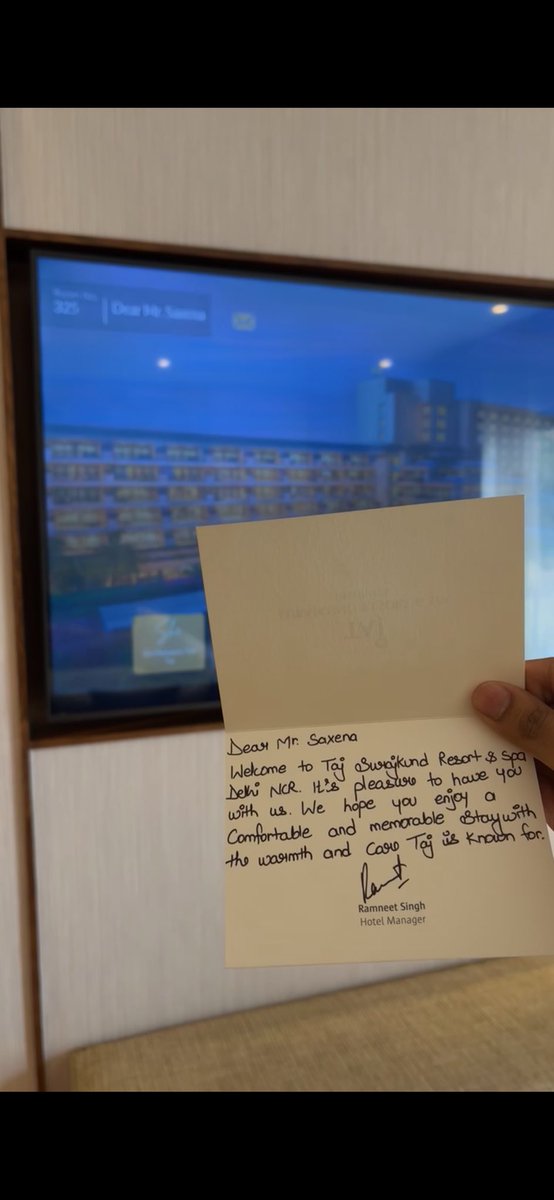 325
Dear Mr. Saxena
Dear Mr. Saxena
Welcome to Taj Surajkund Resort & Spa
Delhi NCR. It's pleasure to have you
with us. We hope you enjoy a
Comfortable and memorable Stay with
the warmth and Care Taj is known for.
Ramneet Singh
Hotel Manager